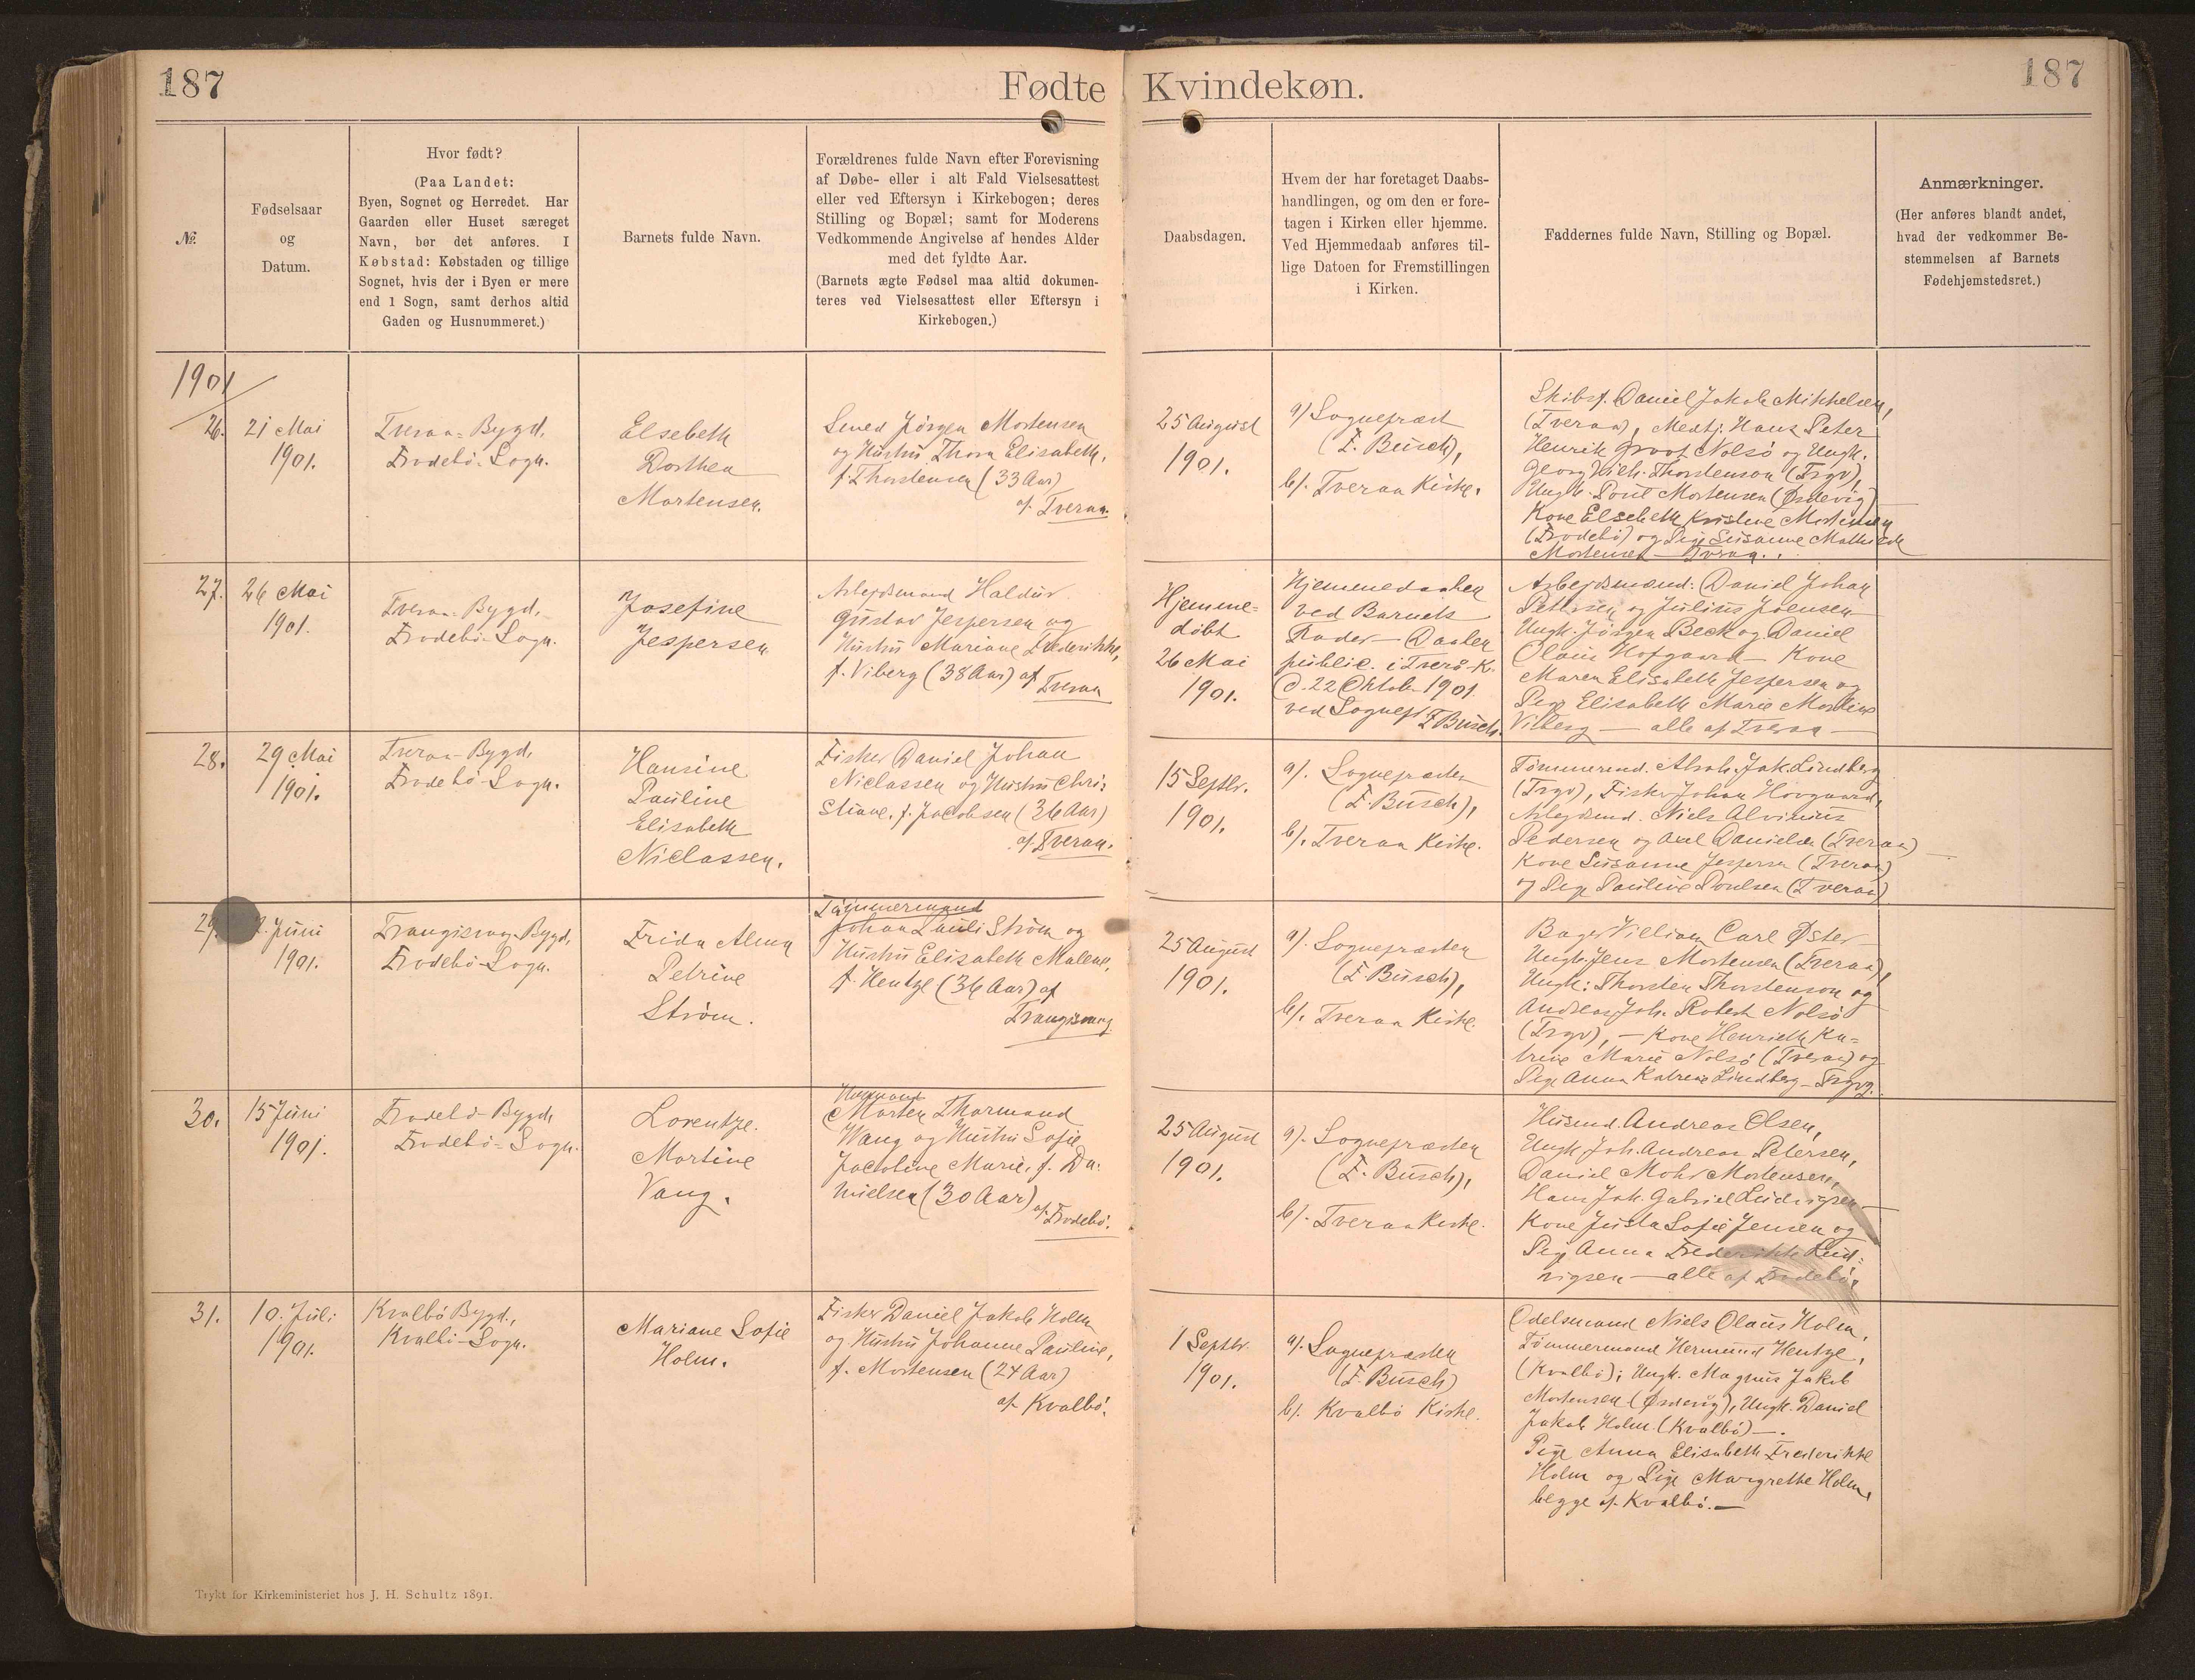 187
Fødte Kvindekøn.
187
№.
Fødselsaar
og
Datum.
Hvor født?
(Paa Landet:
Byen, Sognet og Herredet. Har
Gaarden eller Huset særeget
Navn, bør det anføres. I
Købstad: Købstaden og tillige
Sognet, hvis der i Byen er mere
end 1 Sogn, samt derhos altid
Gaden og Husnummeret.)
Barnets fulde Navn.
Forældrenes fulde Navn efter Forevisning
af Døbe- eller i alt Fald Vielsesattest
eller ved Eftersyn i Kirkebogen; deres
Stilling og Bopæl; samt for Moderens
Vedkommende Angivelse af hendes Alder
med det fyldte Aar.
(Barnets ægte Fødsel maa altid dokumen-
teres ved Vielsesattest eller Eftersyn i
Kirkebogen.)
Daabsdagen.
Hvem der har foretaget Daabs-
handlingen, og om den er fore-
tagen i Kirken eller hjemme.
Ved Hjemmedaab anføres til-
lige Datoen for Fremstillingen
i Kirken.
Faddernes fulde Navn, Stilling og Bopæl.
Anmærkninger.
(Her anføres blandt andet,
hvad der vedkommer Be-
stemmelsen af Barnets
Fødehjemstedsret.)
1901
26.
21 Mai
1901.
Tveraa-Bygd,
Frodebö-Sogn.
Elsebeth
Dorthea
Mortensen.
Smed Jörgen Mortensen
og Hustru Thora Elisabeth,
f. Thorstensen (33 Aar)
af Tveraa.
25 August
1901.
a) Sognepræst
(F. Busch),
b/. Tveraa Kirke.
Skibsf. Daniel Jakob Mikkelsen,
(Tveraa), Hans Peter
Henrik Groot Nolsö og Ungk.
Georg Wilh. Thorstenson (Trgv),
Ungk. Poul Mortensen (Øsdevig)
Kone Elsebeth Kristine Mortensen
(Frodebö) og Pige Susanne Mathilde
Mortensen – Tveraa.
27.
26 Mai
1901.
Tveraa-Bygd,
Frodebö-Sogn.
Josefine
Jespersen
Arbejdsmand Haldur
Gustav Jespersen og
Hustru Mariane Frederikke,
f. Viberg (38 Aar) af Tveraa
Hjemme-
döbt
26 Mai
1901.
Hjemmedaaben
ved Barnets
Fader – Daaben
public. i Tverö-K.
d. 22 Oktob. 1901
ved Sognepr F Busch.
Arbejdsmænd: Daniel Johan
Petersen og Julius Joensen
Ungk. Jörgen Beck og Daniel
Olaus Hofgaard – Kone
Maren Elisabeth Jespersen og
Pige Elisabeth Marie Mortine
Viberg – alle af Tveraa –
28.
29 Mai
1901.
Tveraa-Bygd,
Frodebö-Sogn.
Hansine
Pauline
Elisabeth
Niclassen.
Fisker Daniel Johan
Niclassen og Hustru Chri-
stiane, f. Jacobsen (36 Aar)
af Tveraa.
15 Septbr.
1901.
a/. Sognepræsten
(F. Busch),
b/. Tveraa Kirke.
Tömmermd. Abrah. Jak. Lindberg
(Trgv), Fisker Johan Hovgaard,
Arbejdsmd. Niels Alvinius
Pedersen og Danielsen (Tveraa)
Kone Susanne Jespersen (Tveraa)
og Pige Pauline Poulsen (Tveraa)
29.
Juni
1901.
Trangisvaag-Bygd,
Frodebö-Sogn.
Frida Alma
Petrine
Ström.
Tömmermand
Johan Pauli Ström og
Hustru Elisabeth Malene,
f. Hentze (36 Aar) af
Trangisvaag
25 August
1901.
a/. Sognepræsten
(F. Busch),
b/. Tveraa Kirke.
Bager William Carl Øster
Ungk. Jens Mortensen (Tveraa),
Ungk: Thorsten Thorstenson og
Andreas Joh. Robert Nolsö
(Trgv), – Kone Henriette Ka-
trine Marie Nolsö (Tveraa) og
Pige Anna Katrine Lindberg – Trgvg.
30.
15 Juni
1901.
Frodebö-Bygd,
Frodebö-Sogn.
Lorentze
Martine
Vang.
Husmand
Morten Thormund
Wang og Hustru Sofie
Jacobine Marie, f. Da-
nielsen (30 Aar)
af Frodebö.
25 August
1901.
a/. Sognepræsten
(F. Busch),
b/. Tveraa Kirke.
Husmd. Andreas Olsen,
Ungk Joh. Andreas Petersen,
Daniel Mohr Mortensen,
Hans Jak. Gabriel Ludvigsen –
Kone Justa Sofie Jensen og
Pige Anna Frederikke Lud-
vigsen – alle af Frodebö.
31.
10. Juli
1901.
Kvalbö Bygd.,
Kvalbö-Sogn.
Mariane Sofie
Holm.
Fisker Daniel Jakob Holm
og Hustru Johanne Pauline,
f. Mortensen (24 Aar)
af Kvalbö.
1 Septbr
1901.
a/. Sognepræsten
(F. Busch)
b/. Kvalbö Kirke.
Odelsmand Niels Olaus Holm,
Tömmermand Hermund Hentze,
(Kvalbö); Ungk. Magnus Jakob
Mortensen (Øsdevig), Ungk. Daniel
Jakob Holm (Kvalbö) –.
Pige Anna Elisabeth Frederikke
Holm og Pige Margrethe Holm,
begge af Kvalbö. –
Trykt for Kirkeministeriet hos J. H. Schultz 1891.